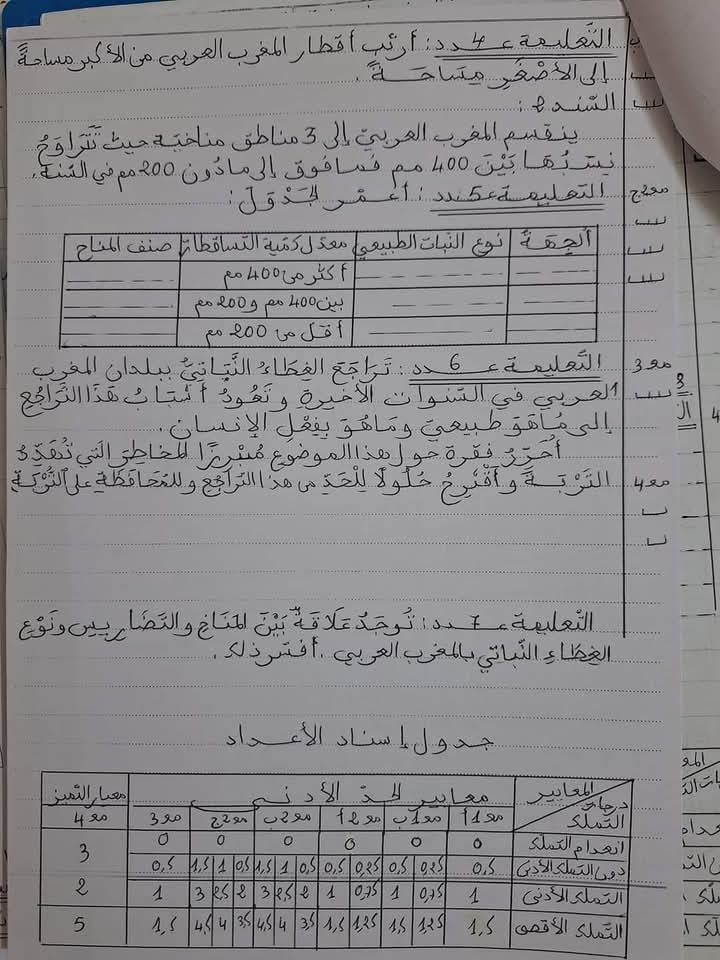 التعليمة عـ4ـدد: أرتّب أقطار المغرب العربي من الأكبر مساحةً
إلى الأصغر مساحةً.
السّند 2:
ينقسم المغرب العربيّ إلى 3 مناطق مناخيّة حيث تتراوح
نسبها بين 400 مم فما فوق إلى ما دون 200 مم في السّنة.
مع2ج
التعليمة عـ5ـدد: أعمّر الجدول:
الجهة نوع النبات الطبيعي معدل كمية التساقطات صنف المناخ
أكثر من 400 مم
بين 400 مم و 200 مم
أقل من 200 مم
مع3
التّعليمة عـ6ـدد: تراجع الغطاء النّباتيّ ببلدان المغرب
العربي في السّنوات الأخيرة وتعود أسباب هذا التّراجع
إلى ما هو طبيعيّ وما هو بفعل الإنسان.
أحرّر فقرة حول هذا الموضوع مبرزا المخاطر التي تهدّد
مع4
التّربة وأقترح حلولًا للحدّ من هذا التراجع وللمحافظة على التّربة
التّعليمة عـ7ـدد: توجد علاقة بين المناخ والتضاريس ونوع
الغطاء النّباتي بالمغرب العربي. أفسّر ذلك.
جدول إسناد الأعداد
المعايير
درجات التملك
معايير الحدّ الأدنى
معيار التميز
مع1أ مع1ب مع2أ مع2ب مع2ج مع3 مع4
انعدام التملك 0 0 0 0 0 0
دون التملك الأدنى 0,5 0,25 0,5 0,25 0,5 0,5 1 1,5 0,5 1 1,5 0,5 3
التملك الأدنى 1 0,75 1 0,75 1 2 2,5 3 2 2,5 3 1 2
التملك الأقصى 1,5 1,25 1,5 1,25 1,5 3,5 4 4,5 3,5 4 4,5 1,5 5